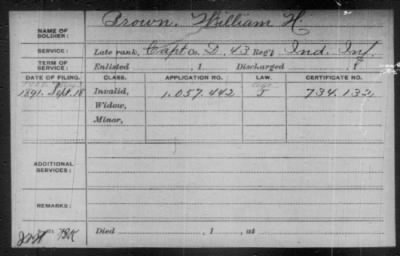 NAME OF SOLDIER: Brown, William H.
SERVICE: Late rank, Capt Co. D, 43 Reg't Ind. Inf.
TERM OF SERVICE: Enlisted , 1 Discharged , 1
DATE OF FILING. CLASS. APPLICATION NO. LAW. CERTIFICATE NO.
1891. Sept. 18 Invalid, 1.057.442 J 734.132
Widow,
Minor,
ADDITIONAL SERVICES:
REMARKS:
Died , 1 , at